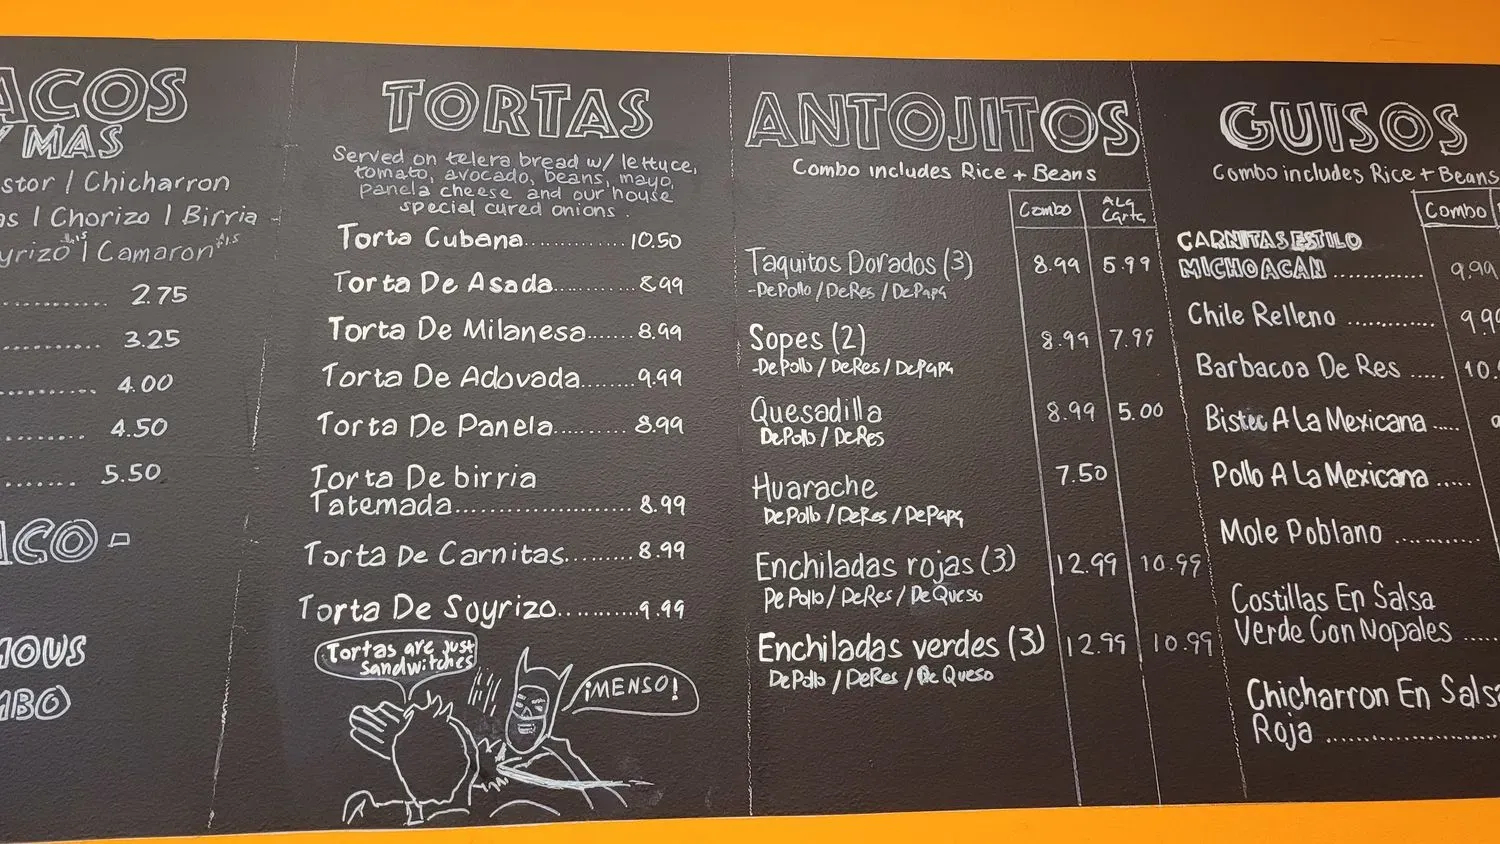 ACOS
Y MAS
stor | Chicharron
as | Chorizo | Birria
oyrizo | Camaron
2.75
3.25
4.00
4.50
5.50
ACO -
MOUS
MBO
TORTAS
Served on telera bread w/ lettuce,
tomato, avocado, beans, mayo,
panela cheese and our house
special cured onions.
Torta Cubana............10.50
Torta De Asada...........8.99
Torta De Milanesa.......8.99
Torta De Adovada........9.99
Torta De Panela..........8.99
Torta De birria
Tatemada........................8.99
Torta De Carnitas.........8.99
Torta De Soyrizo..........9.99
Tortas are just
sandwitches
¡MENSO!
ANTOJITOS
Combo includes Rice + Beans
Combo A La Carta
Taquitos Dorados (3) 8.99 5.99
-De Pollo / De Res / De Papa
Sopes (2) 8.99 7.99
-De Pollo / De Res / De Papa
Quesadilla 8.99 5.00
De Pollo / De Res
Huarache 7.50
De Pollo / De Res / De Papa
Enchiladas rojas (3) 12.99 10.99
De Pollo / De Res / De Queso
Enchiladas verdes (3) 12.99 10.99
De Pollo / De Res / De Queso
GUISOS
Combo includes Rice + Beans
Combo
CARNITAS ESTILO
MICHOACAN ............ 9.99
Chile Relleno ............ 9.99
Barbacoa De Res ..... 10.
Bistec A La Mexicana .....
Pollo A La Mexicana .....
Mole Poblano ............
Costillas En Salsa
Verde Con Nopales .....
Chicharron En Salsa
Roja ........................